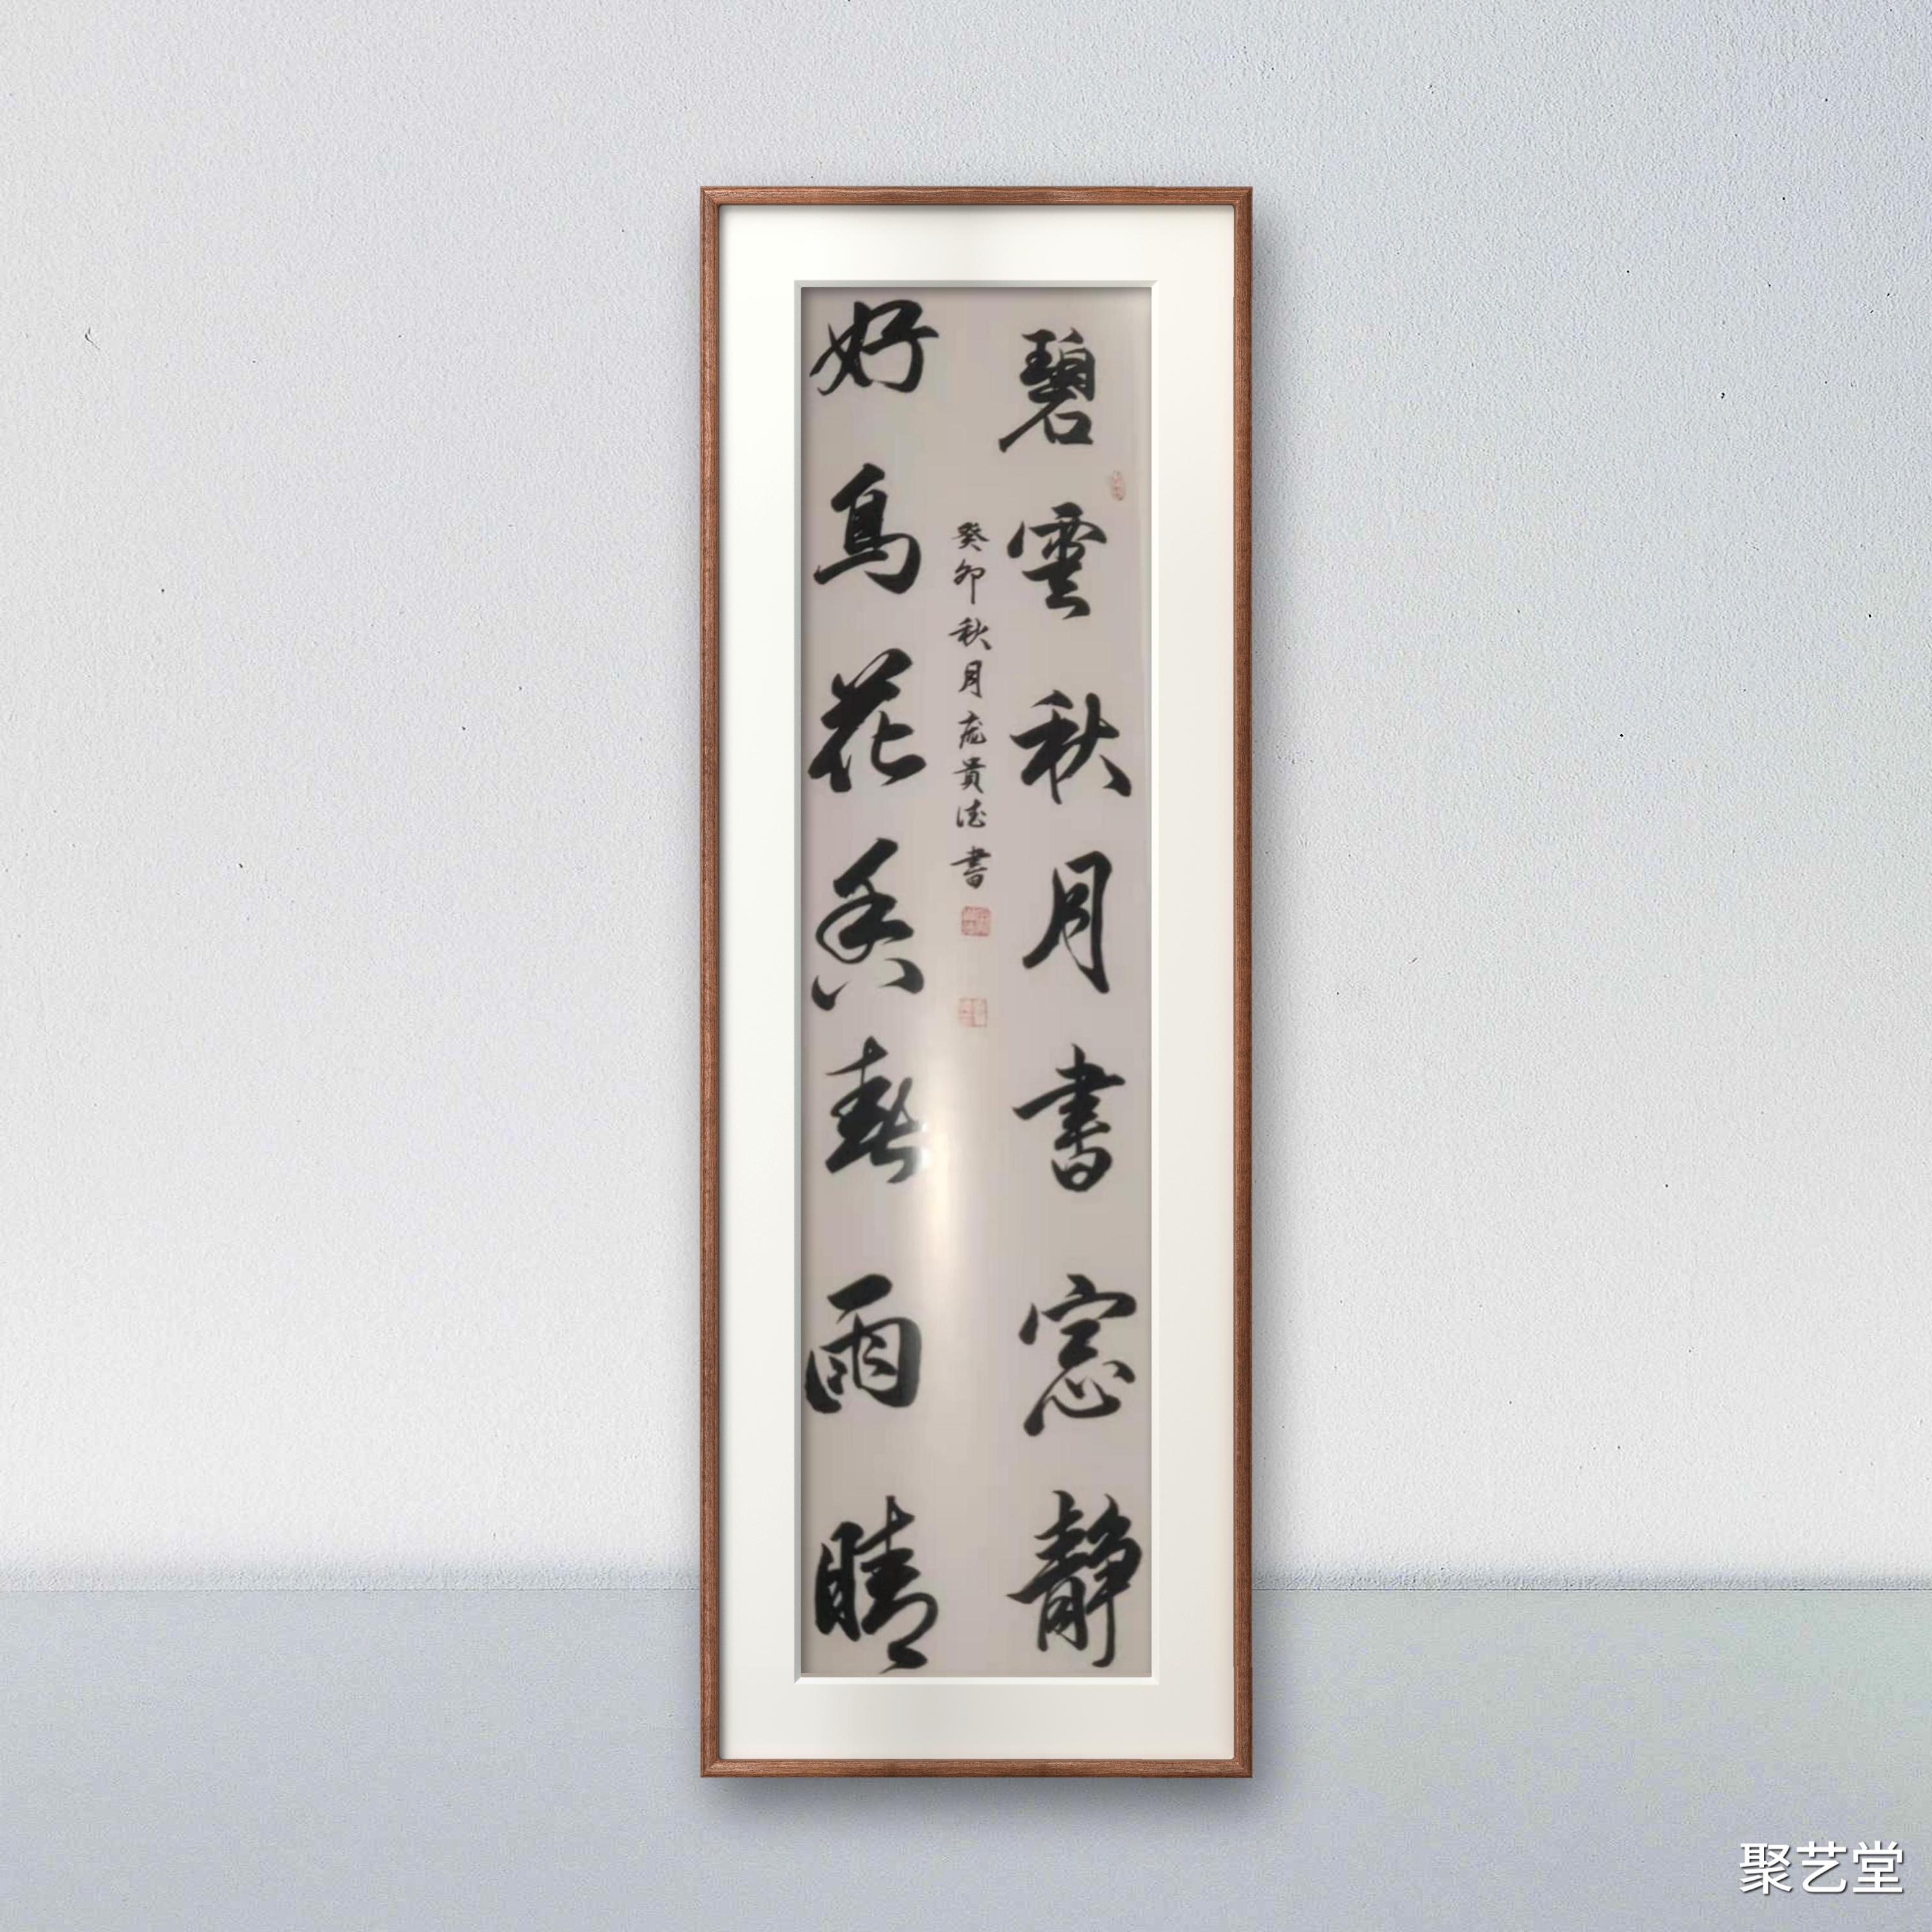 碧雲秋月書窓静
癸卯秋月庞贵德書
好鳥花香春雨晴
聚艺堂